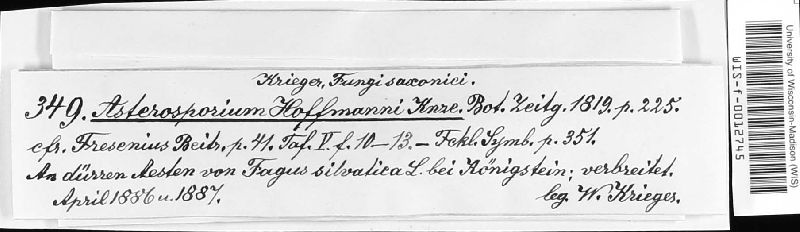 Krieger, Fungi saxonici.
349. Asterosporium Hoffmanni Knze. Bot. Zeitg. 1819. p. 225.
cfr. Fresenius Beitr. p. 41. Taf. V. f. 10–13. – Fckl. Symb. p. 351.
An dürren Aesten von Fagus silvatica L. bei Königstein; verbreitet.
April 1886 u. 1887. leg. W. Krieger.
University of Wisconsin-Madison (WIS)
WIS-f-0012745